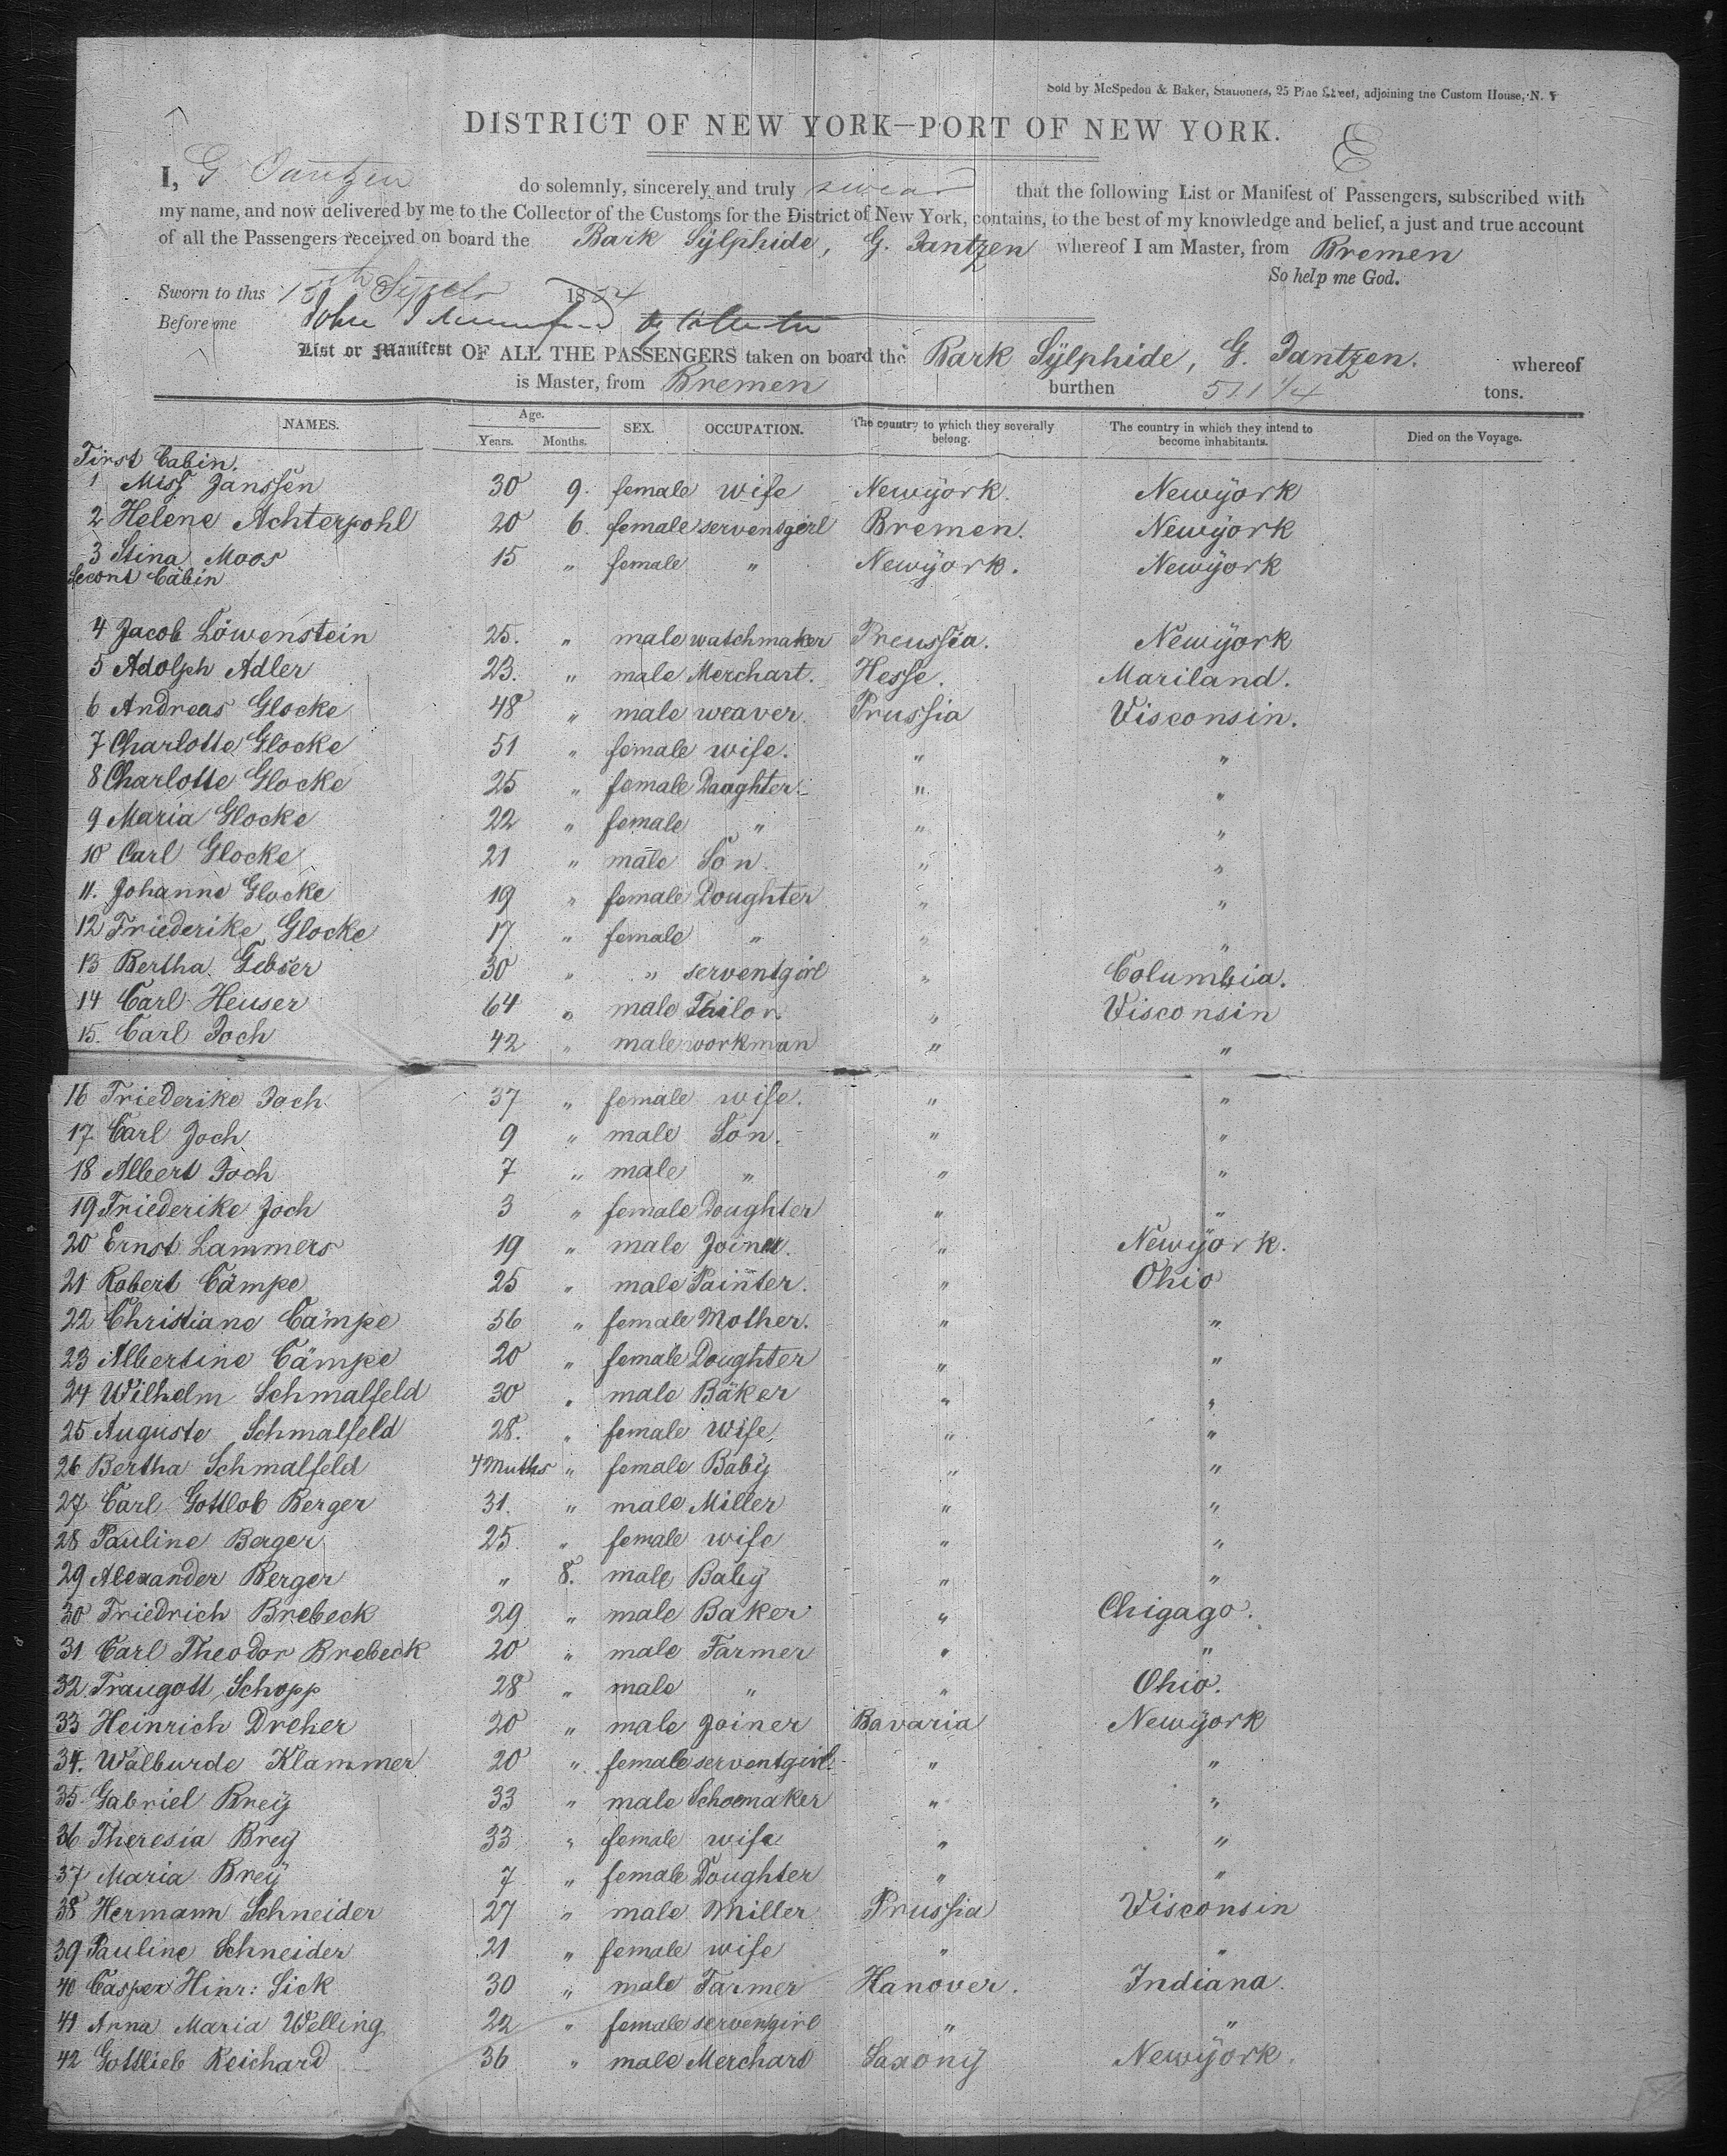 Sold by McSpedon & Baker, Stationers, 25 Pine Street, adjoining the Custom House, N. Y
DISTRICT OF NEW YORK—PORT OF NEW YORK.
E
I, G Jantzen do solemnly, sincerely and truly swear that the following List or Manifest of Passengers, subscribed with
my name, and now delivered by me to the Collector of the Customs for the District of New York, contains, to the best of my knowledge and belief, a just and true account
of all the Passengers received on board the Bark Sÿlphide, G. Jantzen whereof I am Master, from Bremen
So help me God.
Sworn to this 15th Septr 1854
Before me John
List or Manifest OF ALL THE PASSENGERS taken on board the Bark Sÿlphide, G. Jantzen. whereof
is Master, from Bremen burthen 511 1/4 tons.
NAMES. Age. Years. Months. SEX. OCCUPATION. The country to which they severally belong. The country in which they intend to become inhabitants. Died on the Voyage.
First Cabin.
1 Miss Janssen 30 9. female wife Newÿork. Newÿork
2 Helene Achterpohl 20 6. female serventgirl Bremen. Newÿork
3 Stina Moos 15 " female " Newÿork. Newÿork
Secont Cabin
4 Jacob Löwenstein 25. " male watschmaker Preussia. Newÿork
5 Adolph Adler 23. " male Merchart. Hesse. Mariland.
6 Andreas Glocke 48 " male weaver. Prussia Visconsin.
7 Charlotte Glocke 51 " female wife. " "
8 Charlotte Glocke 25 " female Daughter. " "
9 Maria Glocke 22 " female " " "
10 Carl Glocke 21 " male Son. " "
11. Johanne Glocke 19 " female Doughter " "
12 Friederike Glocke 17 " female " " "
13 Bertha Gebser 30 " " serventgirl " Columbia.
14 Carl Heuser 64 " male Tailor. " Visconsin
15. Carl Joch 42 " male workman " "
16 Friederike Joch 37 " female wife. " "
17. Carl Joch 9 " male Son. " "
18 Albert Joch 7 " male " " "
19 Friederike Joch 3 " female Doughter " "
20 Ernst Lammers 19 " male Joiner. " Newÿork.
21 Robert Cämpe 25 " male Painter. " Ohio
22 Christiane Cämpe 56 " female Mother. " "
23 Albertine Cämpe 20 " female Doughter " "
24 Wilhelm Schmalfeld 30 " male Bäker " "
25 Auguste Schmalfeld 28. " female Wife, " "
26 Bertha Schmalfeld 4 Muths " female Babÿ " "
27 Carl Gottlob Berger 31. " male Miller " "
28 Pauline Berger 25. " female wife " "
29 Alexander Berger " 8. male Babÿ " "
30 Friedrich Brebeck 29 " male Baker " Chigago.
31 Carl Theodor Brebeck 20 " male Farmer " "
32. Traugott Schopp 28 " male " " Ohio.
33 Heinrich Dreher 20 " male Joiner Bavaria Newÿork
34. Walburde Klammer 20 " female serventgirl. " "
35 Gabriel Breÿ 33 " male Schoemaker " "
36 Theresia Breÿ 33 " female wife " "
37 Maria Breÿ 7 " female Doughter " "
38 Hermann Schneider 27 " male Miller Prussia Visconsin
39 Pauline Schneider 21 " female wife " "
40 Casper Hinr: Sick 30 " male Farmer Hanover. Indiana.
41 Anna Maria Welling 22 " female serventgirl " "
42 Gottlieb Reichard 36 " male Merchard Saxonÿ Newÿork.